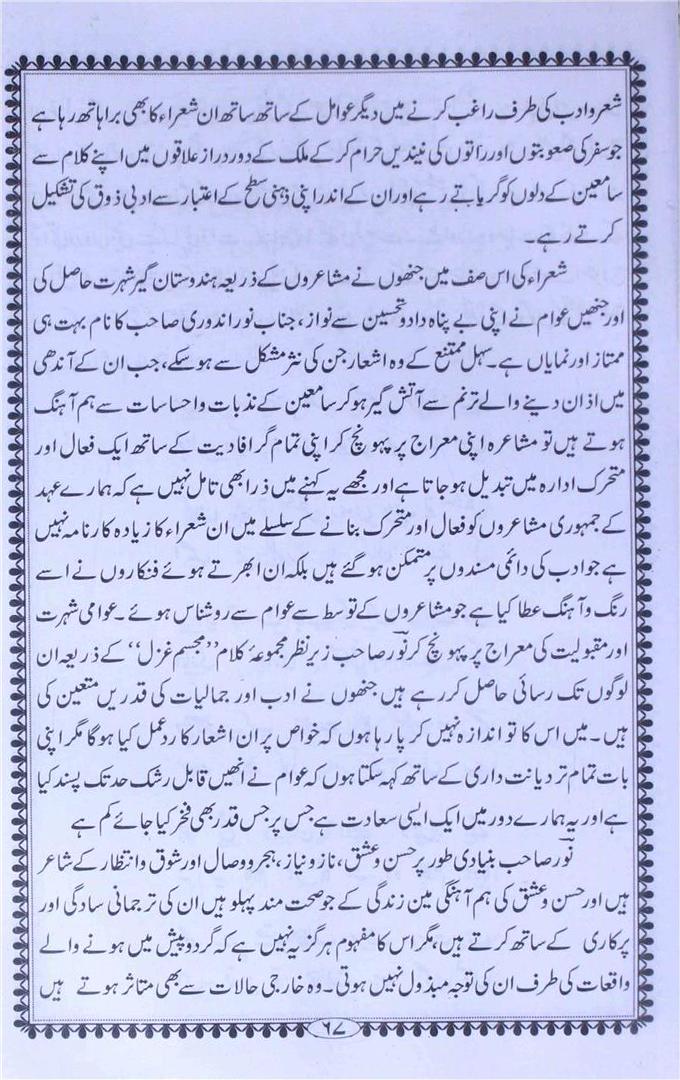 شعر و ادب کی طرف راغب کرنے میں دیگر عوامل کے ساتھ ساتھ ان شعراء کا بھی بڑا ہاتھ رہا ہے
جو سفر کی صعوبتوں اور راتوں کی نیندیں حرام کر کے ملک کے دور دراز علاقوں میں اپنے کلام سے
سامعین کے دلوں کو گرماتے رہے اور ان کے اندر اپنی ذہنی سطح کے اعتبار سے ادبی ذوق کی تشکیل
کرتے رہے۔
شعراء کی اس صف میں جنھوں نے مشاعروں کے ذریعہ ہندوستان گیر شہرت حاصل کی
اور جنھیں عوام نے اپنی بے پناہ داد و تحسین سے نوازا، جناب نور اندوری صاحب کا نام بہت ہی
ممتاز اور نمایاں ہے۔ سہل ممتنع کے وہ اشعار جن کی نثر مشکل سے ہو سکے، جب ان کے آندھی
میں اذان دینے والے ترنم سے آتش گیر ہو کر سامعین کے جذبات و احساسات سے ہم آہنگ
ہوتے ہیں تو مشاعرہ اپنی معراج پر پہونچ کر اپنی تمام گرافادیت کے ساتھ ایک فعال اور
متحرک ادارہ میں تبدیل ہو جاتا ہے اور مجھے یہ کہنے میں ذرا بھی تامل نہیں ہے کہ ہمارے عہد
کے جمہوری مشاعروں کو فعال اور متحرک بنانے کے سلسلے میں ان شعراء کا زیادہ کارنامہ نہیں
ہے جو ادب کی دائمی مسندوں پر متمکن ہو گئے ہیں بلکہ ان ابھرتے ہوئے فنکاروں نے اسے
رنگ و آہنگ عطا کیا ہے جو مشاعروں کے توسط سے عوام سے روشناس ہوئے۔ عوامی شہرت
اور مقبولیت کی معراج پر پہونچ کر نورؔ صاحب زیر نظر مجموعۂ کلام ”مجسم غزل“ کے ذریعہ ان
لوگوں تک رسائی حاصل کر رہے ہیں جنھوں نے ادب اور جمالیات کی قدریں متعین کی
ہیں۔ میں اس کا تو اندازہ نہیں کر پا رہا ہوں کہ خواص پر ان اشعار کا ردعمل کیا ہوگا مگر اپنی
بات تمام تر دیانت داری کے ساتھ کہہ سکتا ہوں کہ عوام نے انھیں قابل رشک حد تک پسند کیا
ہے اور یہ ہمارے دور میں ایک ایسی سعادت ہے جس پر جس قدر بھی فخر کیا جائے کم ہے
نورؔ صاحب بنیادی طور پر حسن و عشق، ناز و نیاز، ہجر و وصال اور شوق و انتظار کے شاعر
ہیں اور حسن و عشق کی ہم آہنگی مین زندگی کے جو صحت مند پہلو ہیں ان کی ترجمانی سادگی اور
پرکاری کے ساتھ کرتے ہیں، مگر اس کا مفہوم ہرگز یہ نہیں ہے کہ گرد و پیش میں ہونے والے
واقعات کی طرف ان کی توجہ مبذول نہیں ہوتی۔ وہ خارجی حالات سے بھی متاثر ہوتے ہیں
۶۷